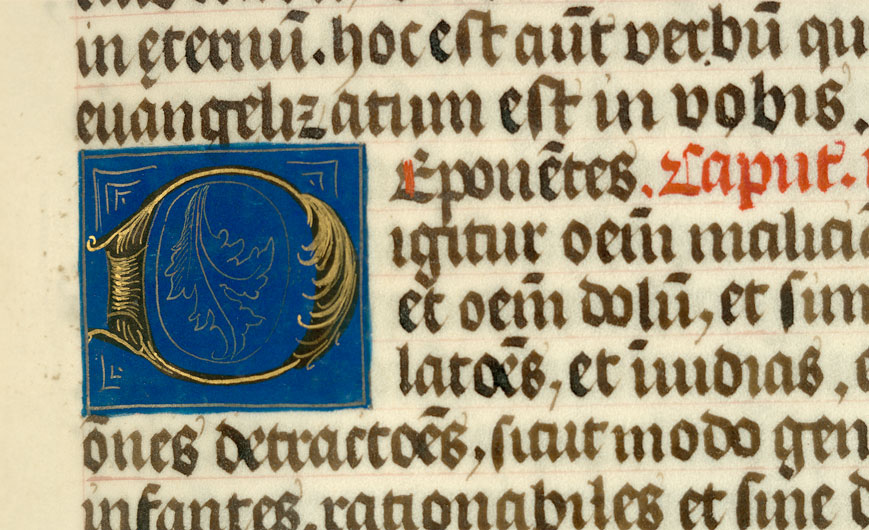 in ęternū. hoc est aūt verbū qu
euangelizatum est in vobis.
DEponētes. Caput.
igitur oēm malicia
et oēm dolū, et sim
latōēs, et īuidias,
ōnes detractōēs, sicut modo gen
infantes, rationabiles et sine d